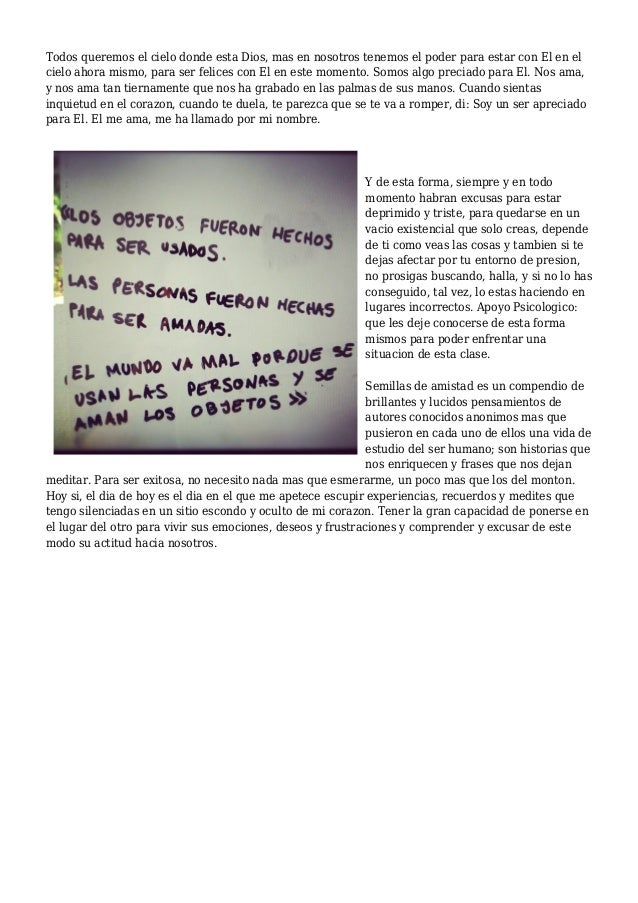 Todos queremos el cielo donde esta Dios, mas en nosotros tenemos el poder para estar con El en el
cielo ahora mismo, para ser felices con El en este momento. Somos algo preciado para El. Nos ama,
y nos ama tan tiernamente que nos ha grabado en las palmas de sus manos. Cuando sientas
inquietud en el corazon, cuando te duela, te parezca que se te va a romper, di: Soy un ser apreciado
para El. El me ama, me ha llamado por mi nombre.
«LOS OBJETOS FUERON HECHOS
PARA SER USADOS.
LAS PERSONAS FUERON HECHAS
PARA SER AMADAS.
EL MUNDO VA MAL PORQUE SE
USAN LAS PERSONAS Y SE
AMAN LOS OBJETOS»
Y de esta forma, siempre y en todo
momento habran excusas para estar
deprimido y triste, para quedarse en un
vacio existencial que solo creas, depende
de ti como veas las cosas y tambien si te
dejas afectar por tu entorno de presion,
no prosigas buscando, halla, y si no lo has
conseguido, tal vez, lo estas haciendo en
lugares incorrectos. Apoyo Psicologico:
que les deje conocerse de esta forma
mismos para poder enfrentar una
situacion de esta clase.
Semillas de amistad es un compendio de
brillantes y lucidos pensamientos de
autores conocidos anonimos mas que
pusieron en cada uno de ellos una vida de
estudio del ser humano; son historias que
nos enriquecen y frases que nos dejan
meditar. Para ser exitosa, no necesito nada mas que esmerarme, un poco mas que los del monton.
Hoy si, el dia de hoy es el dia en el que me apetece escupir experiencias, recuerdos y medites que
tengo silenciadas en un sitio escondo y oculto de mi corazon. Tener la gran capacidad de ponerse en
el lugar del otro para vivir sus emociones, deseos y frustraciones y comprender y excusar de este
modo su actitud hacia nosotros.